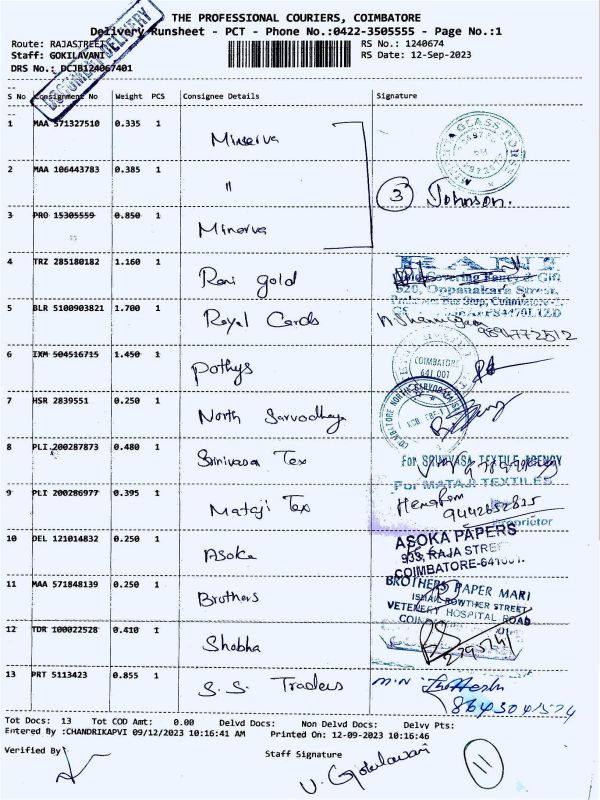 THE PROFESSIONAL COURIERS, COIMBATORE
Delivery Runsheet - PCT - Phone No.:0422-3505555 - Page No.:1
Route: RAJASTREET RS No.: 1240674
Staff: GOKILAVANI RS Date: 12-Sep-2023
DRS No.: DCJB124067401
DOCUMENT DELIVERY
S No Consignment No Weight PCS Consignee Details Signature
1 MAA 571327510 0.335 1 Minerva
2 MAA 106443783 0.385 1 " 3 Johnson.
3 PRO 15305559 0.850 1 Minerva
4 TRZ 285180182 1.160 1 Rani gold
RANI
Covering Fancy & Gift
520, Oppanakara Street,
5 BLR 5100903821 1.700 1 Royal Cards
6 IXM 504516715 1.450 1 Pothys
COIMBATORE
641 001
7 HSR 2839551 0.250 1 North Sarvodhaya
8 PLI 200287873 0.480 1 Srinivasa Tex
For SRINIVASA TEXTILE AGENCY
9 PLI 200286977 0.395 1 Mataji Tex
For MATAJI TEXTILES
9442652825
Proprietor
10 DEL 121014832 0.250 1 Asoka
ASOKA PAPERS
939, RAJA STREET
COIMBATORE-641001.
11 MAA 571848139 0.250 1 Brothers
BROTHERS PAPER MART
ISMAIL ROWTHER STREET
VETENERY HOSPITAL ROAD
12 TDR 100022528 0.410 1 Shobha
13 PRT 5113423 0.855 1 S.S. Traders
Tot Docs: 13 Tot COD Amt: 0.00 Delvd Docs: Non Delvd Docs: Delvy Pts:
Entered By :CHANDRIKAPVI 09/12/2023 10:16:41 AM Printed On: 12-09-2023 10:16:46
Verified By Staff Signature
V. Gokilavani 11